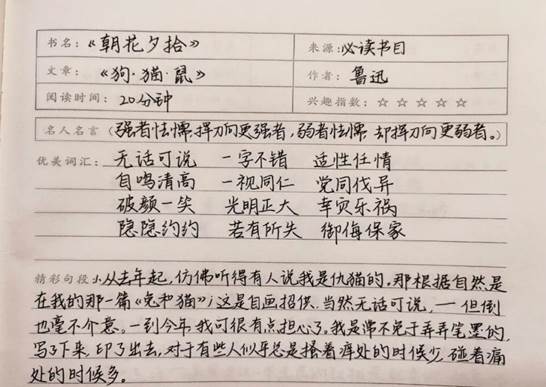 书名：《朝花夕拾》 来源：必读书目
文章：《狗·猫·鼠》 作者：鲁迅
阅读时间：20分钟 兴趣指数：☆☆☆☆☆
名人名言（强者怯懦,挥刀向更强者，弱者怯懦 却挥刀向更弱者。）
优美词汇： 无话可说 一字不错 适性任情
自鸣清高 一视同仁 党同伐异
破颜一笑 光明正大 幸灾乐祸
隐隐约约 若有所失 御侮保家
精彩句段 1.从去年起，仿佛听得有人说我是仇猫的。那根据自然是
在我的那一篇《兔和猫》；这是自画招供，当然无话可说，一但倒
也毫不介意。一到今年，我可很有点担心了。我是常不免于弄弄笔墨的，
写了下来，印了出去，对于有些人似乎总是搔着痒处的时候少，碰着痛
处的时候多。